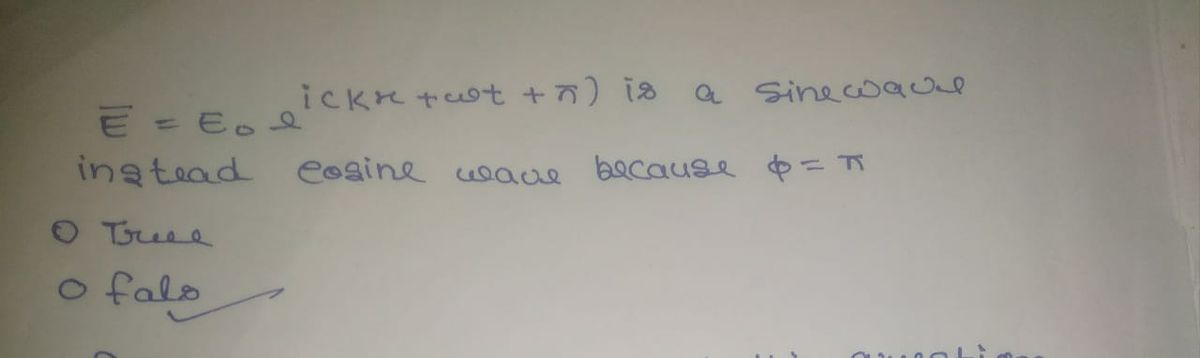 E̅ = E₀ e^i(kx + ωt + π) is a sinewave
instead cosine wave because ϕ = π
○ True
○ fals